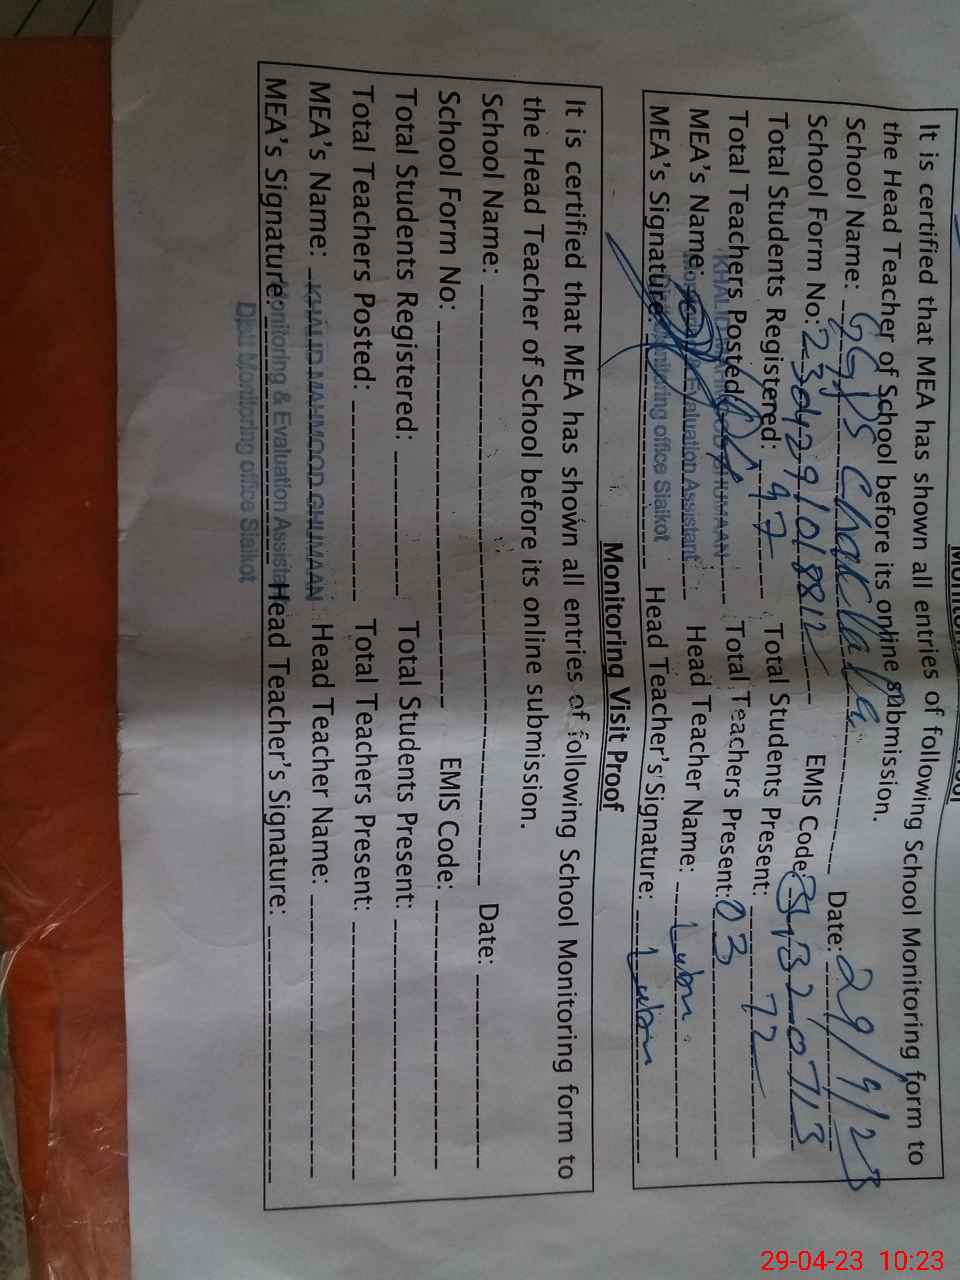 It is certified that MEA has shown all entries of following School Monitoring form to
the Head Teacher of School before its online submission.
School Name: GGPS Chak lala Date: 29/4/23
School Form No: 23042910188 EMIS Code:
Total Students Registered: 97 Total Students Present: 72
Total Teachers Posted: 04 Total Teachers Present: 03
MEA's Name: Head Teacher Name: Lubna
MEA's Signature: Head Teacher's Signature: Lubna
KHALID MAHMOOD GHUMAAN
Monitoring & Evaluation Assistant
Distt Monitoring office Sialkot
Monitoring Visit Proof
It is certified that MEA has shown all entries of following School Monitoring form to
the Head Teacher of School before its online submission.
School Name: Date:
School Form No: EMIS Code:
Total Students Registered: Total Students Present:
Total Teachers Posted: Total Teachers Present:
MEA's Name: KHALID MAHMOOD GHUMAAN Head Teacher Name:
MEA's Signature: Monitoring & Evaluation Assistant Head Teacher's Signature:
Distt Monitoring office Sialkot
29-04-23 10:23